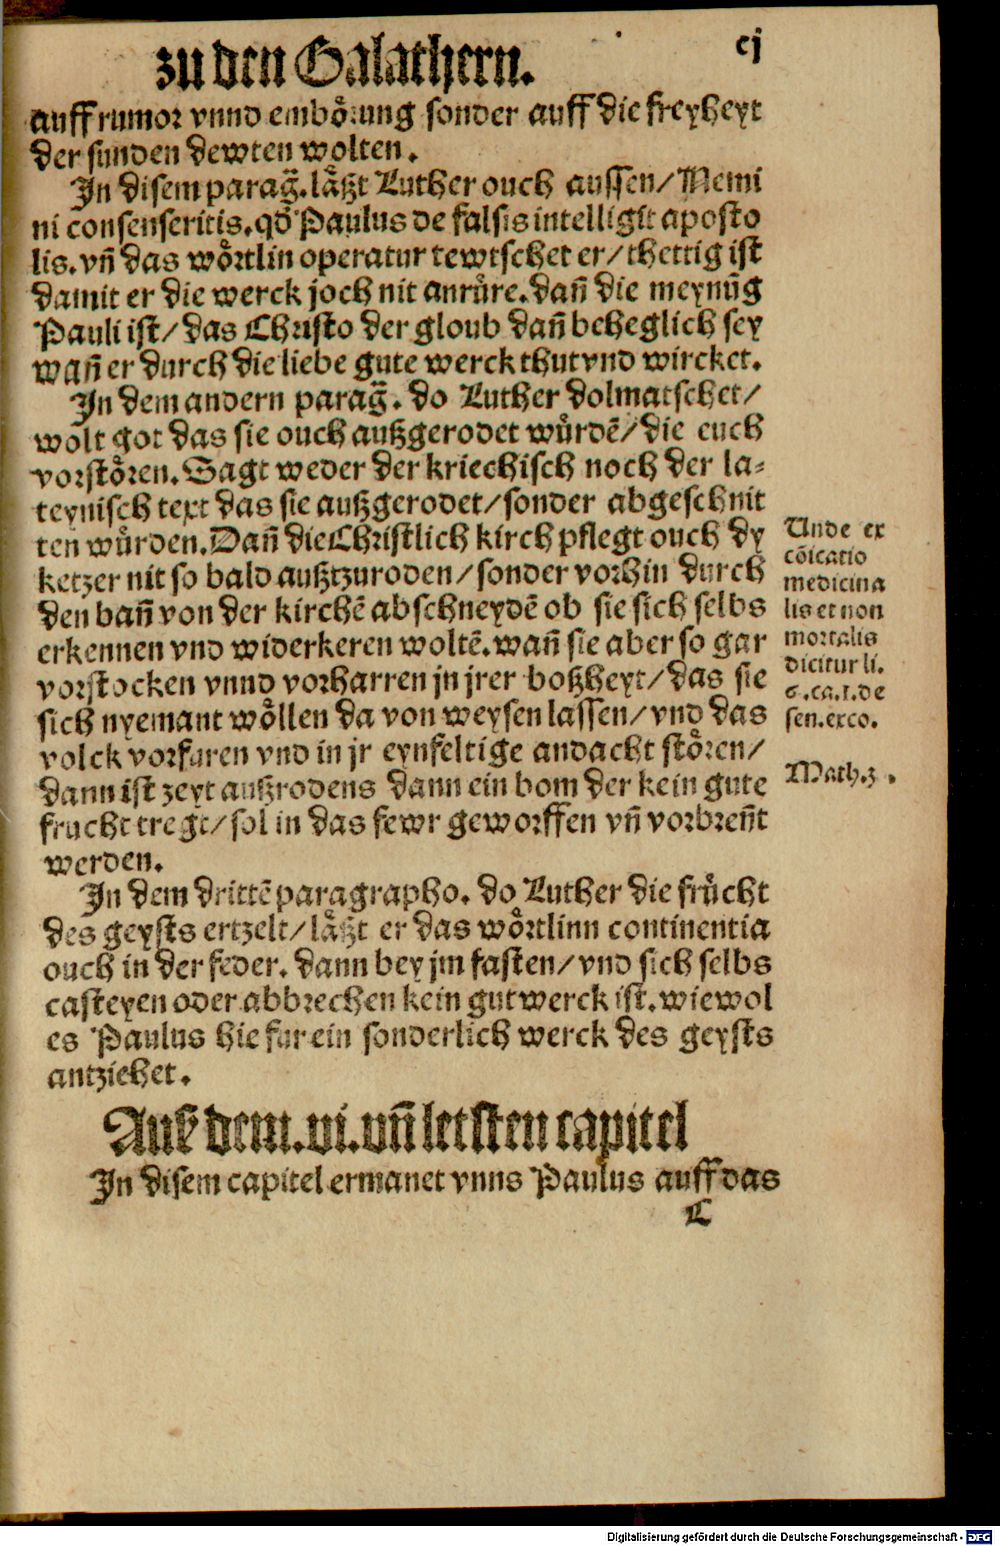 zu den Galathern.
cj
auff rumor vnnd emboͤrung sonder auff die freyheyt
der sunden dewten wolten.
In disem parag̃. laͤßt Luther ouch aussen/ Nemi
ni consenseritis. qđ Paulus de falsis intelligit aposto
lis. vñ das woͤrtlin operatur tewtschet er/ thettig ist
damit er die werck joch nit anruͤre. dañ die meynũg
Pauli ist/ das Christo der gloub dañ beheglich sey
wañ er durch die liebe gute werck thut vnd wircket.
In dem andern parag̃. do Luther dolmatschet/
wolt got das sie ouch außgerodet wuͤrdẽ/ die euch
vorstoͤren. Sagt weder der kriechisch noch der la⸗
teynisch text das sie außgerodet/ sonder abgeschnit
ten wuͤrden. Dañ die Christlich kirch pflegt ouch dy
ketzer nit so bald außtzuroden/ sonder vorhin durch
den bañ von der kirchẽ abschneydẽ ob sie sich selbs
erkennen vnd widerkeren woltẽ. wañ sie aber so gar
vorstocken vnnd vorharren jn jrer boßheyt/ das sie
sich nyemant woͤllen da von weysen lassen/ vnd das
volck vorfuren vnd in jr eynfeltige andacht stoͤren/
dann ist zeyt außrodens dann ein bom der kein gute
frucht tregt/ sol in das fewr geworffen vñ vorbreñt
werden.
Vnde ex
cõicatio
medicina
lis et non
mortalis
dicitur li.
6.ca.1.de
sen.exco.
Math.3.
In dem drittẽ paragrapho. do Luther die fruͤcht
des geysts ertzelt/ laͤßt er das woͤrtlinn continentia
ouch in der feder. dann bey jm fasten/ vnd sich selbs
casteyen oder abbrechen kein gut werck ist. wiewol
es Paulus hie fur ein sonderlich werck des geysts
antziehet.
Auß dem. vi. vñ letsten capitel
In disem capitel ermanet vnns Paulus auff das
C
Digitalisierung gefördert durch die Deutsche Forschungsgemeinschaft - DFG